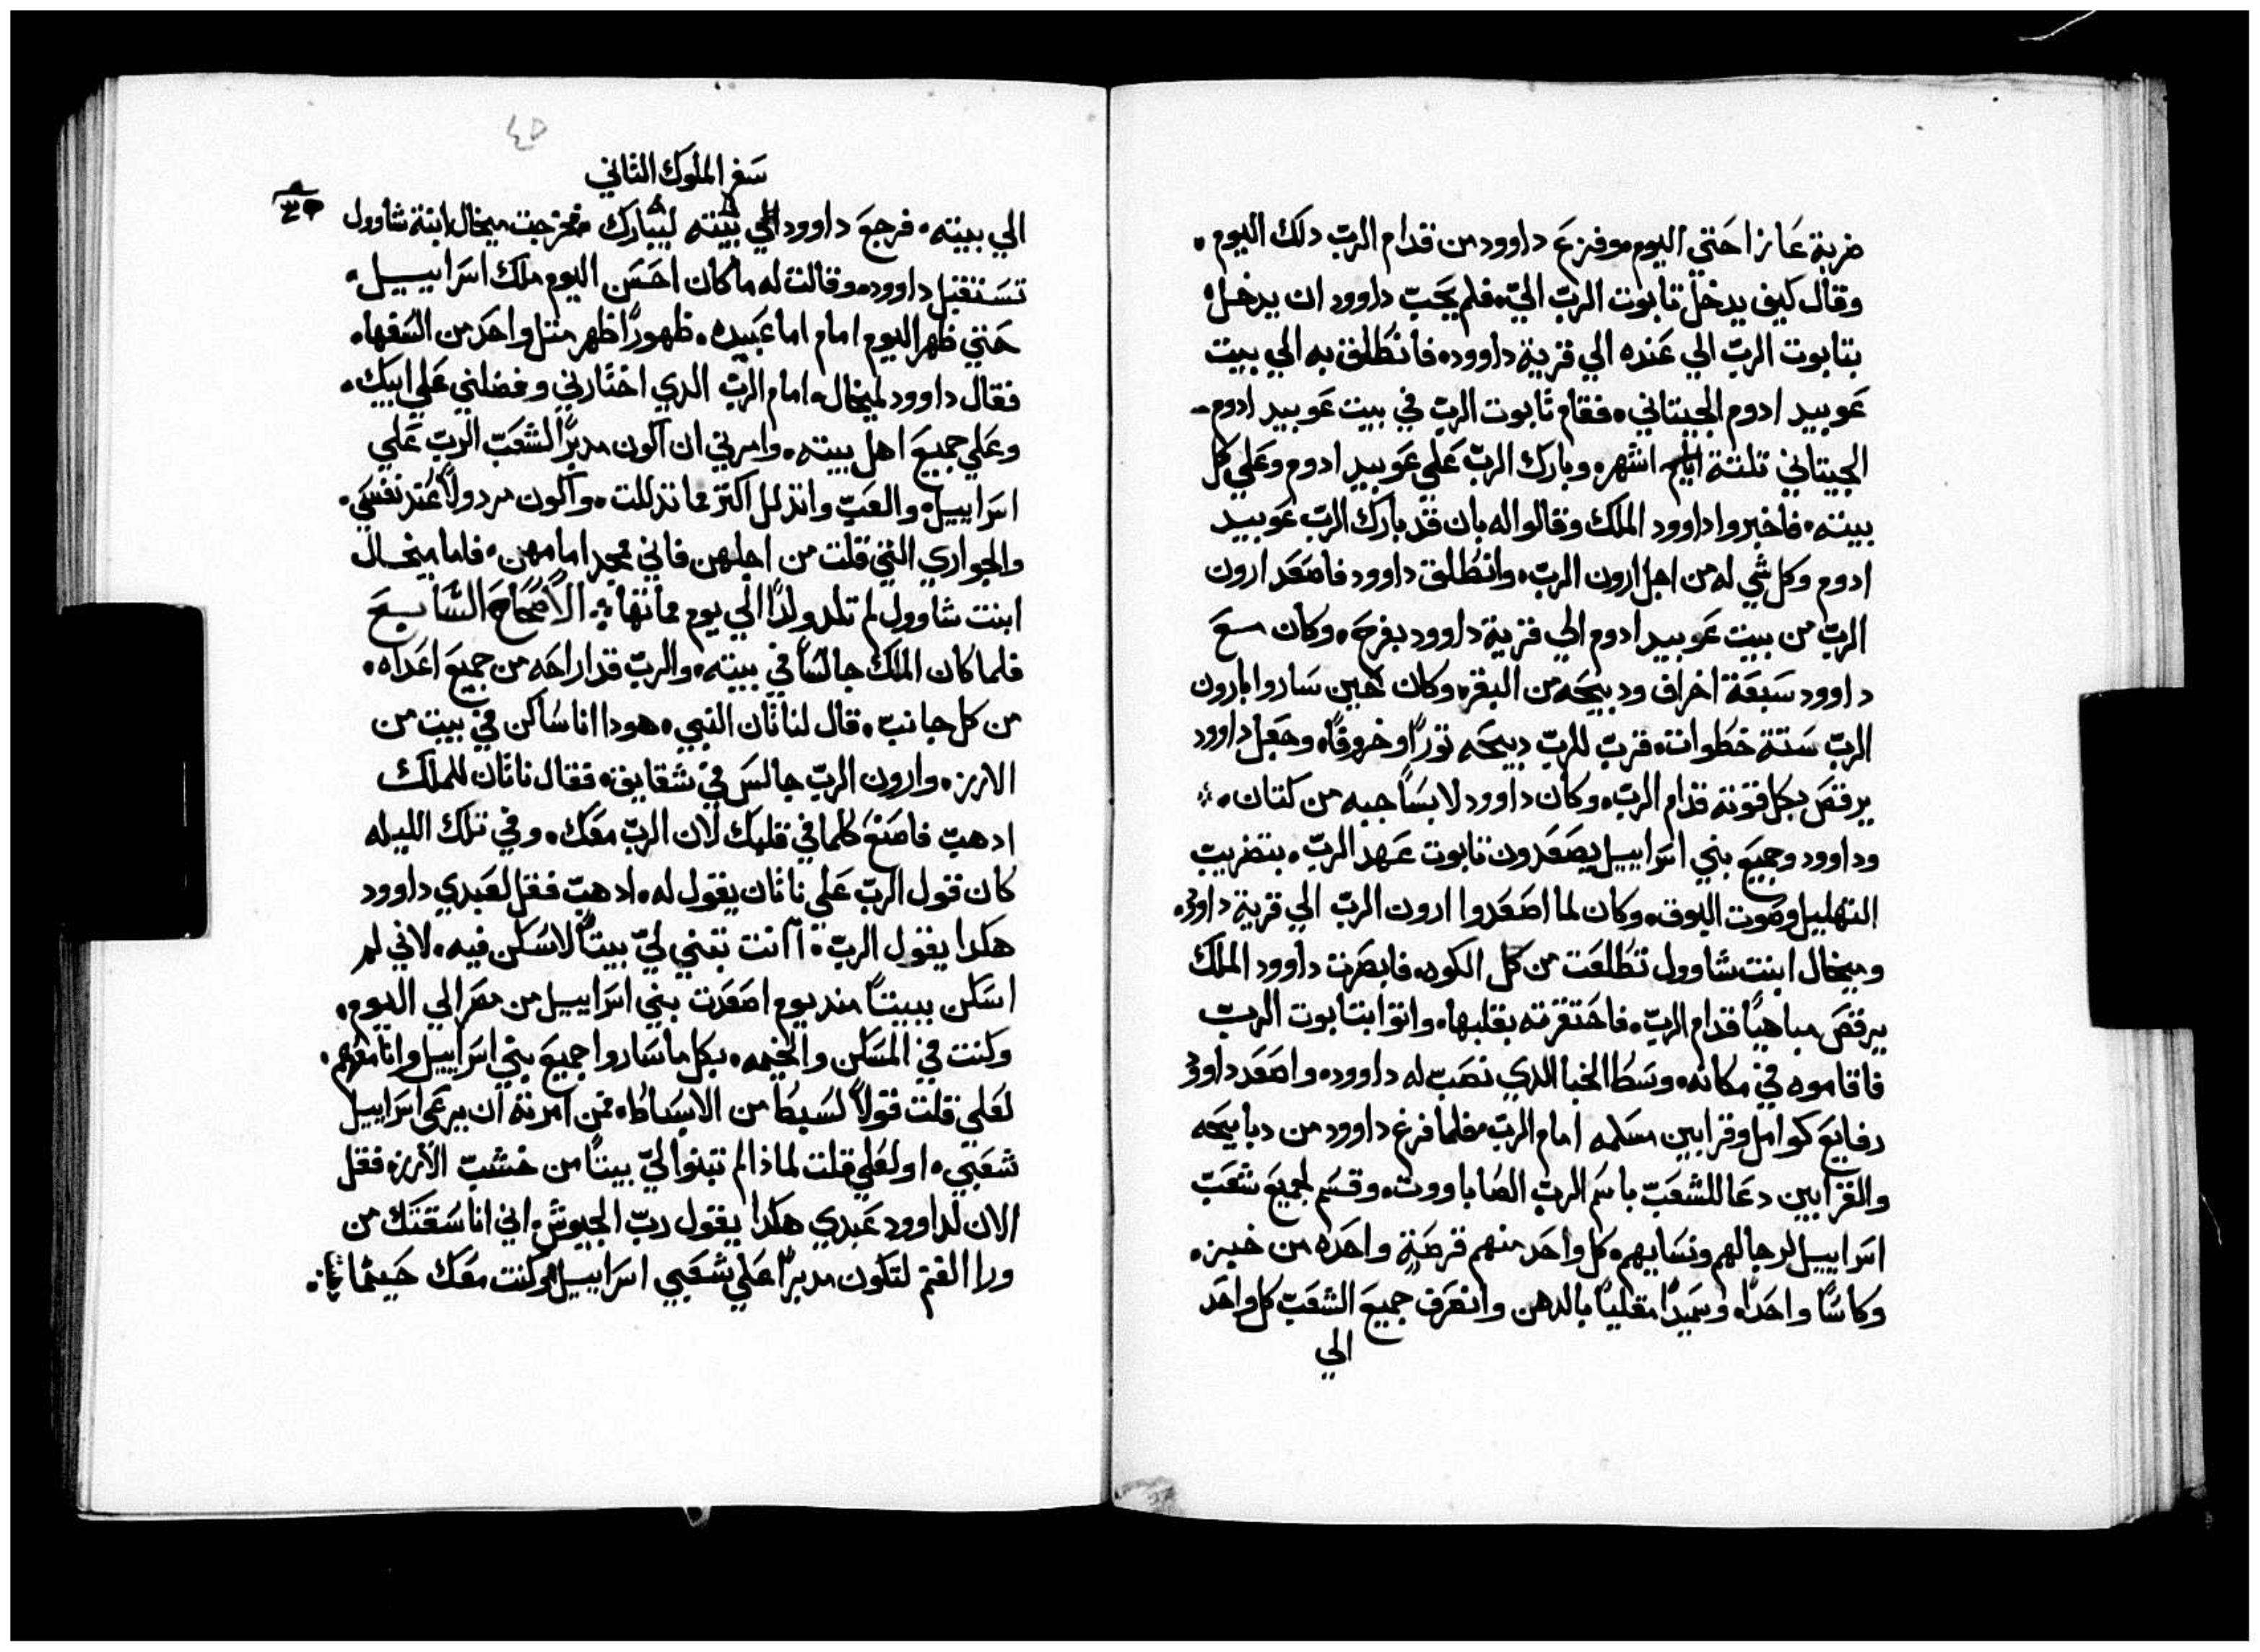 ضربة عازا حتي اليوم وفزع داوود من قدام الربّ دلك اليوم.
وقال كيف يدخل تابوت الربّ اليّ. فلم يحبّ داوود ان يدخل
بتابوت الربّ الي عنده الي قرية داوود. فانطلق به الي بيت
عوبيد ادوم الجيتاني. فقام تابوت الربّ في بيت عوبيد ادوم
الجيتاني تلتة ايام اشهر. وبارك الربّ علي عوبيد ادوم وعلي كل
بيته. فاخبروا داوود الملك وقالوا له بان قد بارك الربّ عوبيد
ادوم وكل شي له من اجل ارون الربّ. وانطلق داوود فاصعد ارون
الربّ من بيت عوبيد ادوم الي قرية داوود بفرح. وكان مع
داوود سبعة اخراف ودبيحه من البقر. وكان حين ساروا بارون
الربّ ستة خطوات. قربّ للربّ دبيحه تورًا وخروفًا. وجعل داوود
يرقص بكل قوته قدام الربّ. وكان داوود لابسًا جبه من كتان.
وداوود وجميع بني اسراييل يصعدون تابوت عهد الربّ. بتضريب
التهليل وصوت البوق. وكان لما اصعدوا ارون الربّ الي قرية داود.
وميخال ابنت شاوول تطلعت من كل الكوه. فابصرت داوود الملك
يرقص مباهيًا قدام الربّ. فاحتقرته بقلبها. واتوا بتابوت الربّ
فاقاموه في مكانه. وسط الخبا الدي نصبّ له داوود. واصعد داود
رفايع كوامل وقرابين مسلمه امام الربّ. فلما فرغ داوود من دبايحه
والقرابين دعا للشعبّ باسم الربّ الصاباووت. وقسم لجميع شعبّ
اسراييل لرجالهم ونسايهم. كل واحد منهم قرصة واحده من خبز.
وكاسًا واحدًا. وسميدًا مقليًا بالدهن وانصرف جميع الشعبّ كل واحد
الي
٤٥
سفر الملوك التاني
الي بيته. فرجع داوود الي بيته ليبارك فخرجت ميخال ابنة شاوول
تستقبل داوود. وقالت له ما كان احسن اليوم ملك اسراييل.
حتي ظهر اليوم امام اما عبيده. ظهورًا ظهر متل واحد من السفها.
فقال داوود لميخال. امام الربّ الدي اختارني وفضلني علي ابيك.
وعلي جميع اهل بيته. وامرني ان اكون مدبرًا لشعبّ الربّ علي
اسراييل. والعبّ واتدلل اكتر مما تدللت. واكون مردولًا عند نفسي.
والجواري التي قلت من اجلهن فاني ممجد امامهن. فاما ميخال
ابنت شاوول لم تلد ولدًا الي يوم مماتها. الاصحاح السابع
فلما كان الملك جالسًا في بيته. والربّ قد اراحه من جميع اعداه.
من كل جانب. قال لناتان النبي. هودا انا ساكن في بيت من
الارز. وارون الربّ جالس في شقايق. فقال ناتان للملك
ادهبّ فاصنع كلما في قلبك لان الربّ معك. وفي تلك الليله
كان قول الربّ علي ناتان يقول له. ادهبّ فقل لعبدي داوود
هكدا يقول الربّ. اانت تبني ليّ بيتًا لاسكن فيه. لاني لم
اسكن ببيتًا مند يوم اصعدت بني اسراييل من مصر الي اليوم.
وكنت في المسكن والخيمه. بكل ما ساروا جميع بني اسراييل وانا معهم.
لعلي قلت قولًا لسبط من الاسباط. ممن امرته ان يرعي اسراييل
شعبي. او لعلي قلت لماذا لم تبنوا ليّ بيتًا من خشبّ الارز. فقل
الان لداوود عبدي هكدا يقول ربّ الجيوش اني انا سقتك من
ورا الغنم لتكون مدبرًا علي شعبي اسراييل وكنت معك حيتما